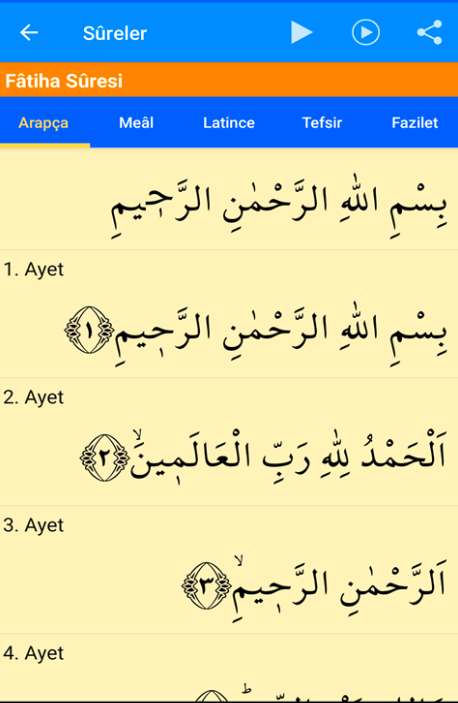 Sûreler
Fâtiha Sûresi
Arapça Meâl Latince Tefsir Fazilet
بِسْمِ اللّٰهِ الرَّحْمٰنِ الرَّح۪يمِ
1. Ayet
بِسْمِ اللّٰهِ الرَّحْمٰنِ الرَّح۪يمِ ﴿١﴾
2. Ayet
اَلْحَمْدُ لِلّٰهِ رَبِّ الْعَالَم۪ينَۙ ﴿٢﴾
3. Ayet
اَلرَّحْمٰنِ الرَّح۪يمِۙ ﴿٣﴾
4. Ayet